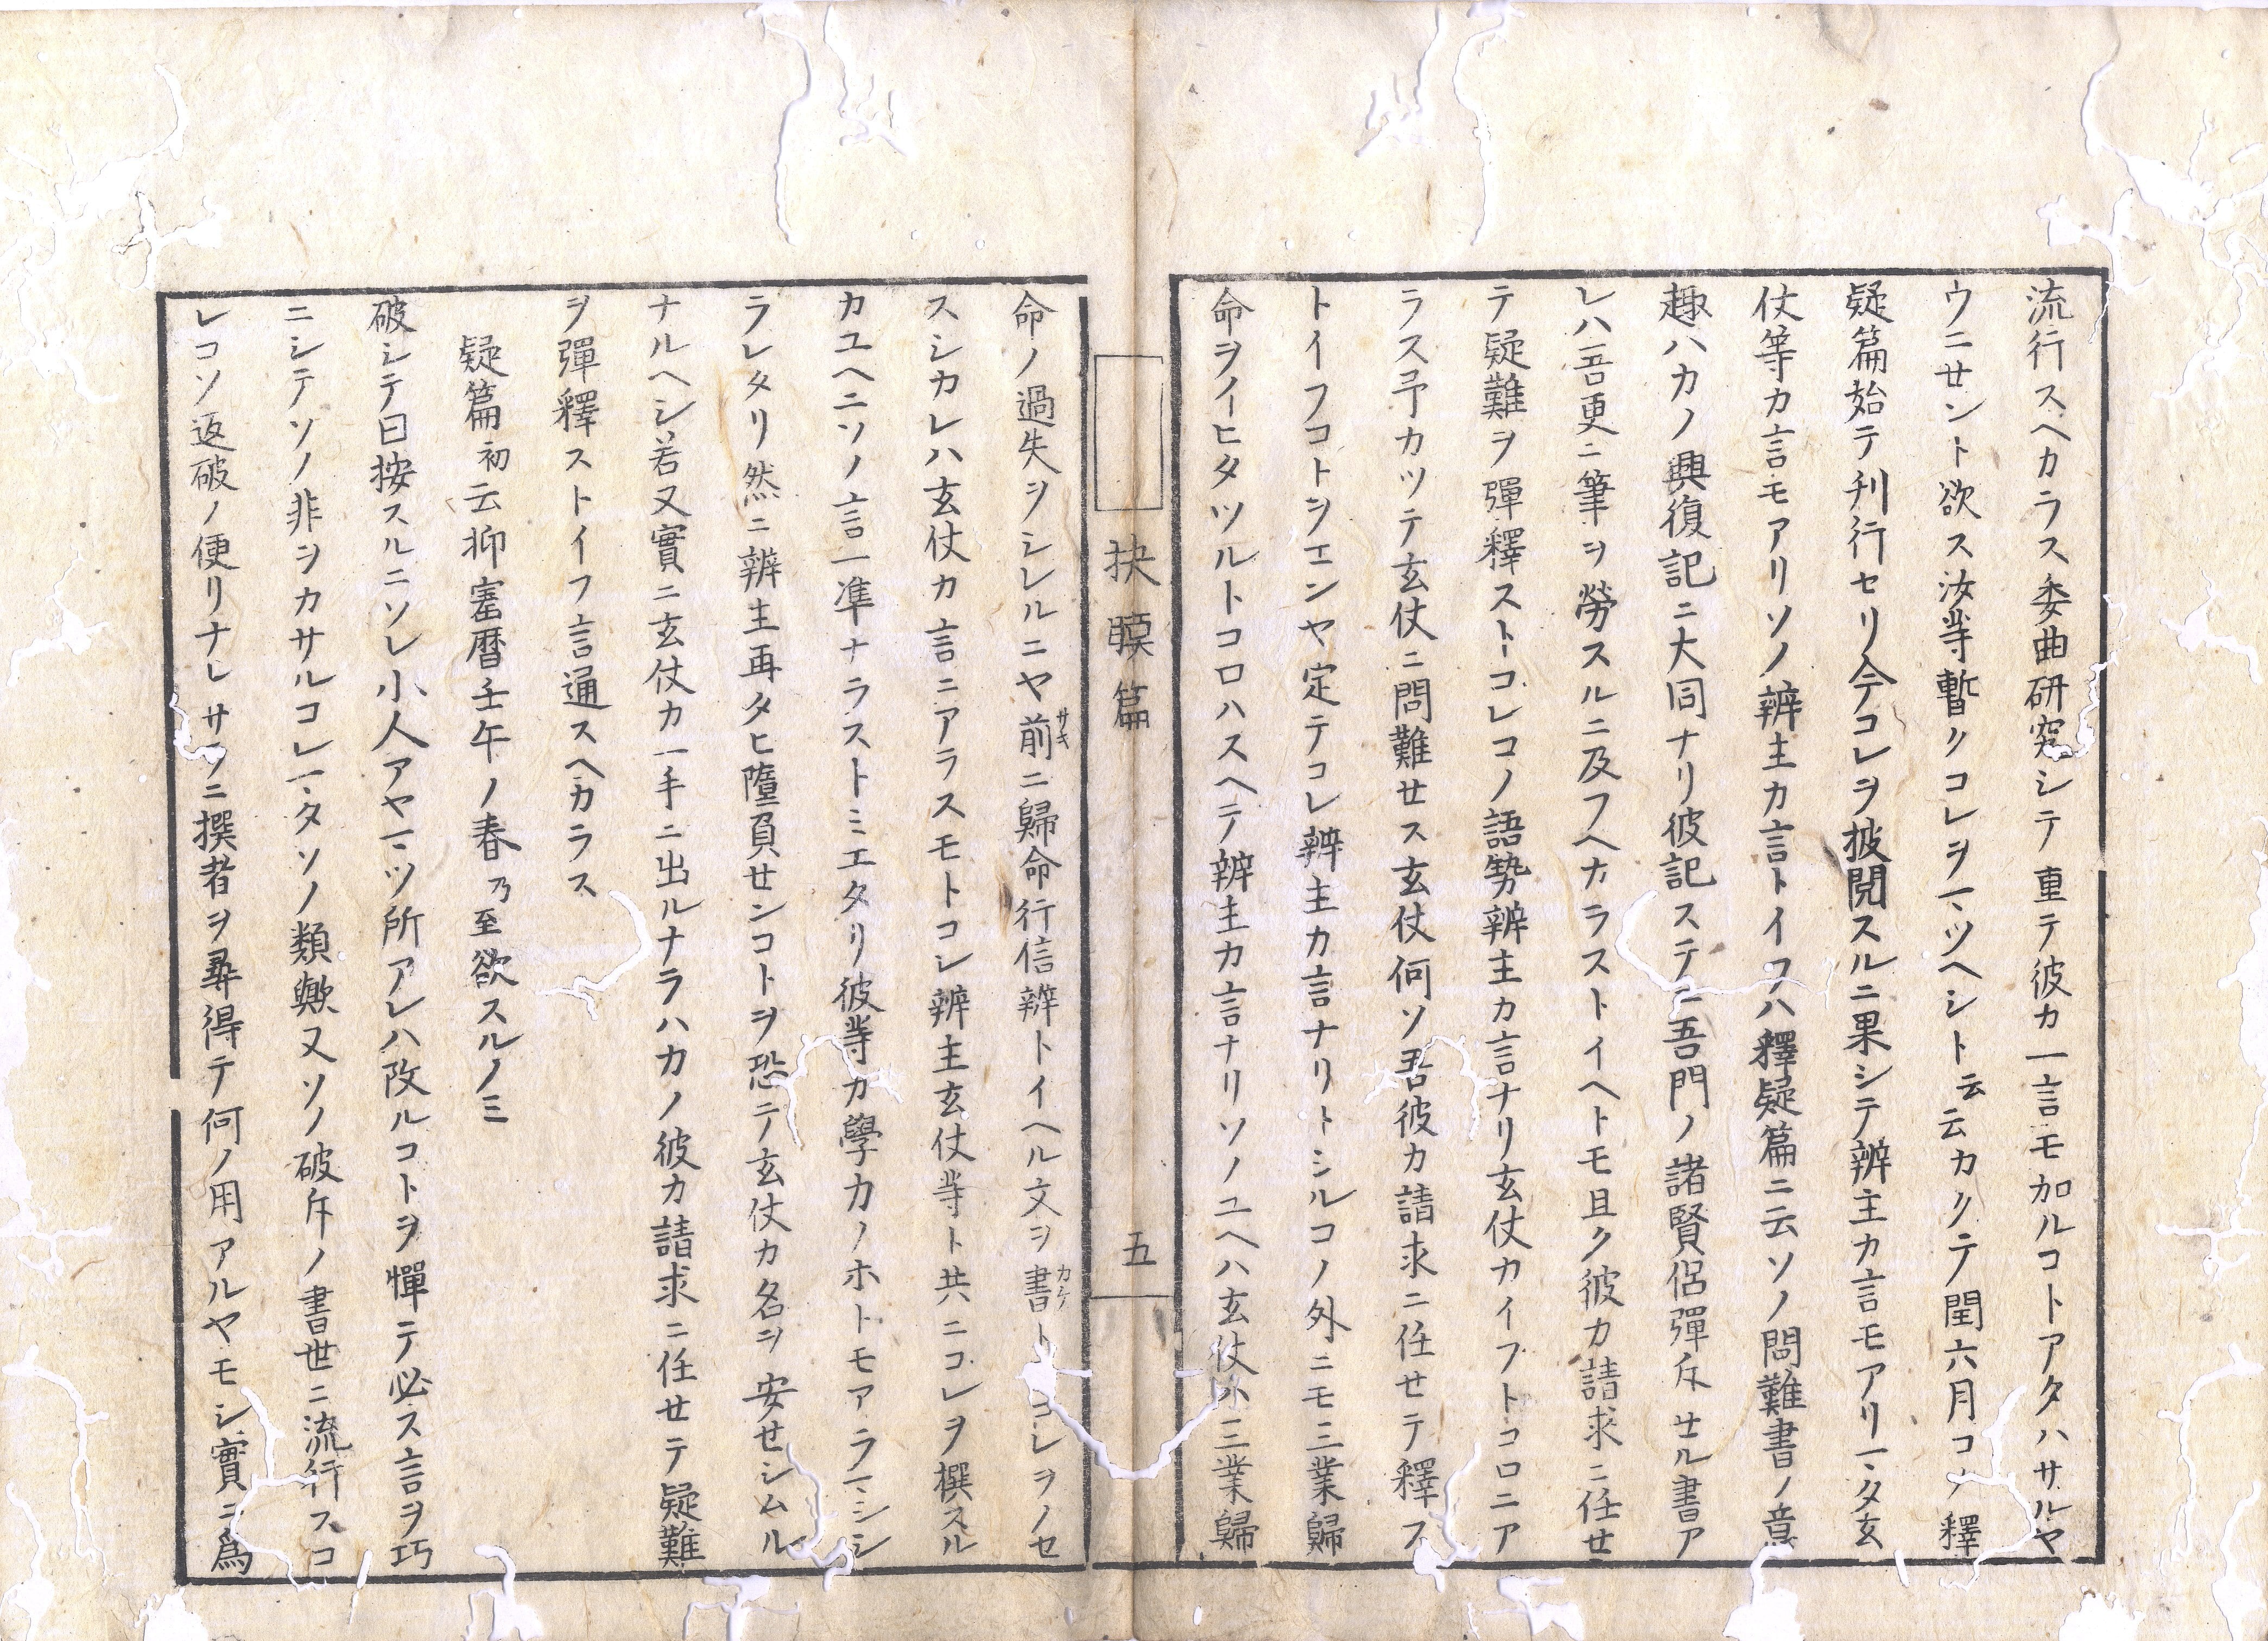 流行スヘカラス委曲研究シテ重テ彼カ一言モ加ルコトアタハサルヤ
ウニセント欲ス汝等暫クコレヲマツヘシト云云カクテ閏六月コノ釋
疑篇始テ刊行セリ今コレヲ披閲スルニ果シテ辨主カ言モアリマタ玄
仗等カ言モアリソノ辨主カ言トイフハ釋疑篇ニ云ソノ問難書ノ意
趣ハカノ興復記ニ大同ナリ彼記ステニ吾門ノ諸賢侶彈斥セル書ア
レハ吾更ニ筆ヲ勞スルニ及フヘカラストイヘトモ且ク彼カ請求ニ任セ
テ疑難ヲ彈釋ストコレコノ語勢辨主カ言ナリ玄仗カイフトコロニア
ラス予カツテ玄仗ニ問難セス玄仗何ソ吾彼カ請求ニ任セテ釋ス
トイフコトヲエンヤ定テコレ辨主カ言ナリトシルコノ外ニモ三業歸
命ヲイヒタツルトコロハスヘテ辨主カ言ナリソノユヘハ玄仗ハ三業歸
抉瞙篇
五
命ノ過失ヲシレルニヤ前サキニ歸命行信辨トイヘル文ヲ書カケトコレヲノセ
スシカレハ玄仗カ言ニアラスモトコレ辨主玄仗等ト共ニコレヲ撰スル
カユヘニソノ言一準ナラストミエタリ彼等カ學力ノホトモアラマシシ
ラレタリ然ニ辨主再タヒ墮負センコトヲ恐テ玄仗カ名ヲ安セシムル
ナルヘシ若又實ニ玄仗カ一手ニ出ルナラハカノ彼カ請求ニ任セテ疑難
ヲ彈釋ストイフ言通スヘカラス
疑篇初云抑寳暦壬午ノ春乃至欲スルノミ
破シテ曰按スルニソレ小人アヤマツ所アレハ改ルコトヲ憚テ必ス言ヲ巧
ニシテソノ非ヲカサルコレマタソノ類歟又ソノ破斥ノ書世ニ流行スコ
レコソ返破ノ便リナレサラニ撰者ヲ尋得テ何ノ用アルヤモシ實ニ爲